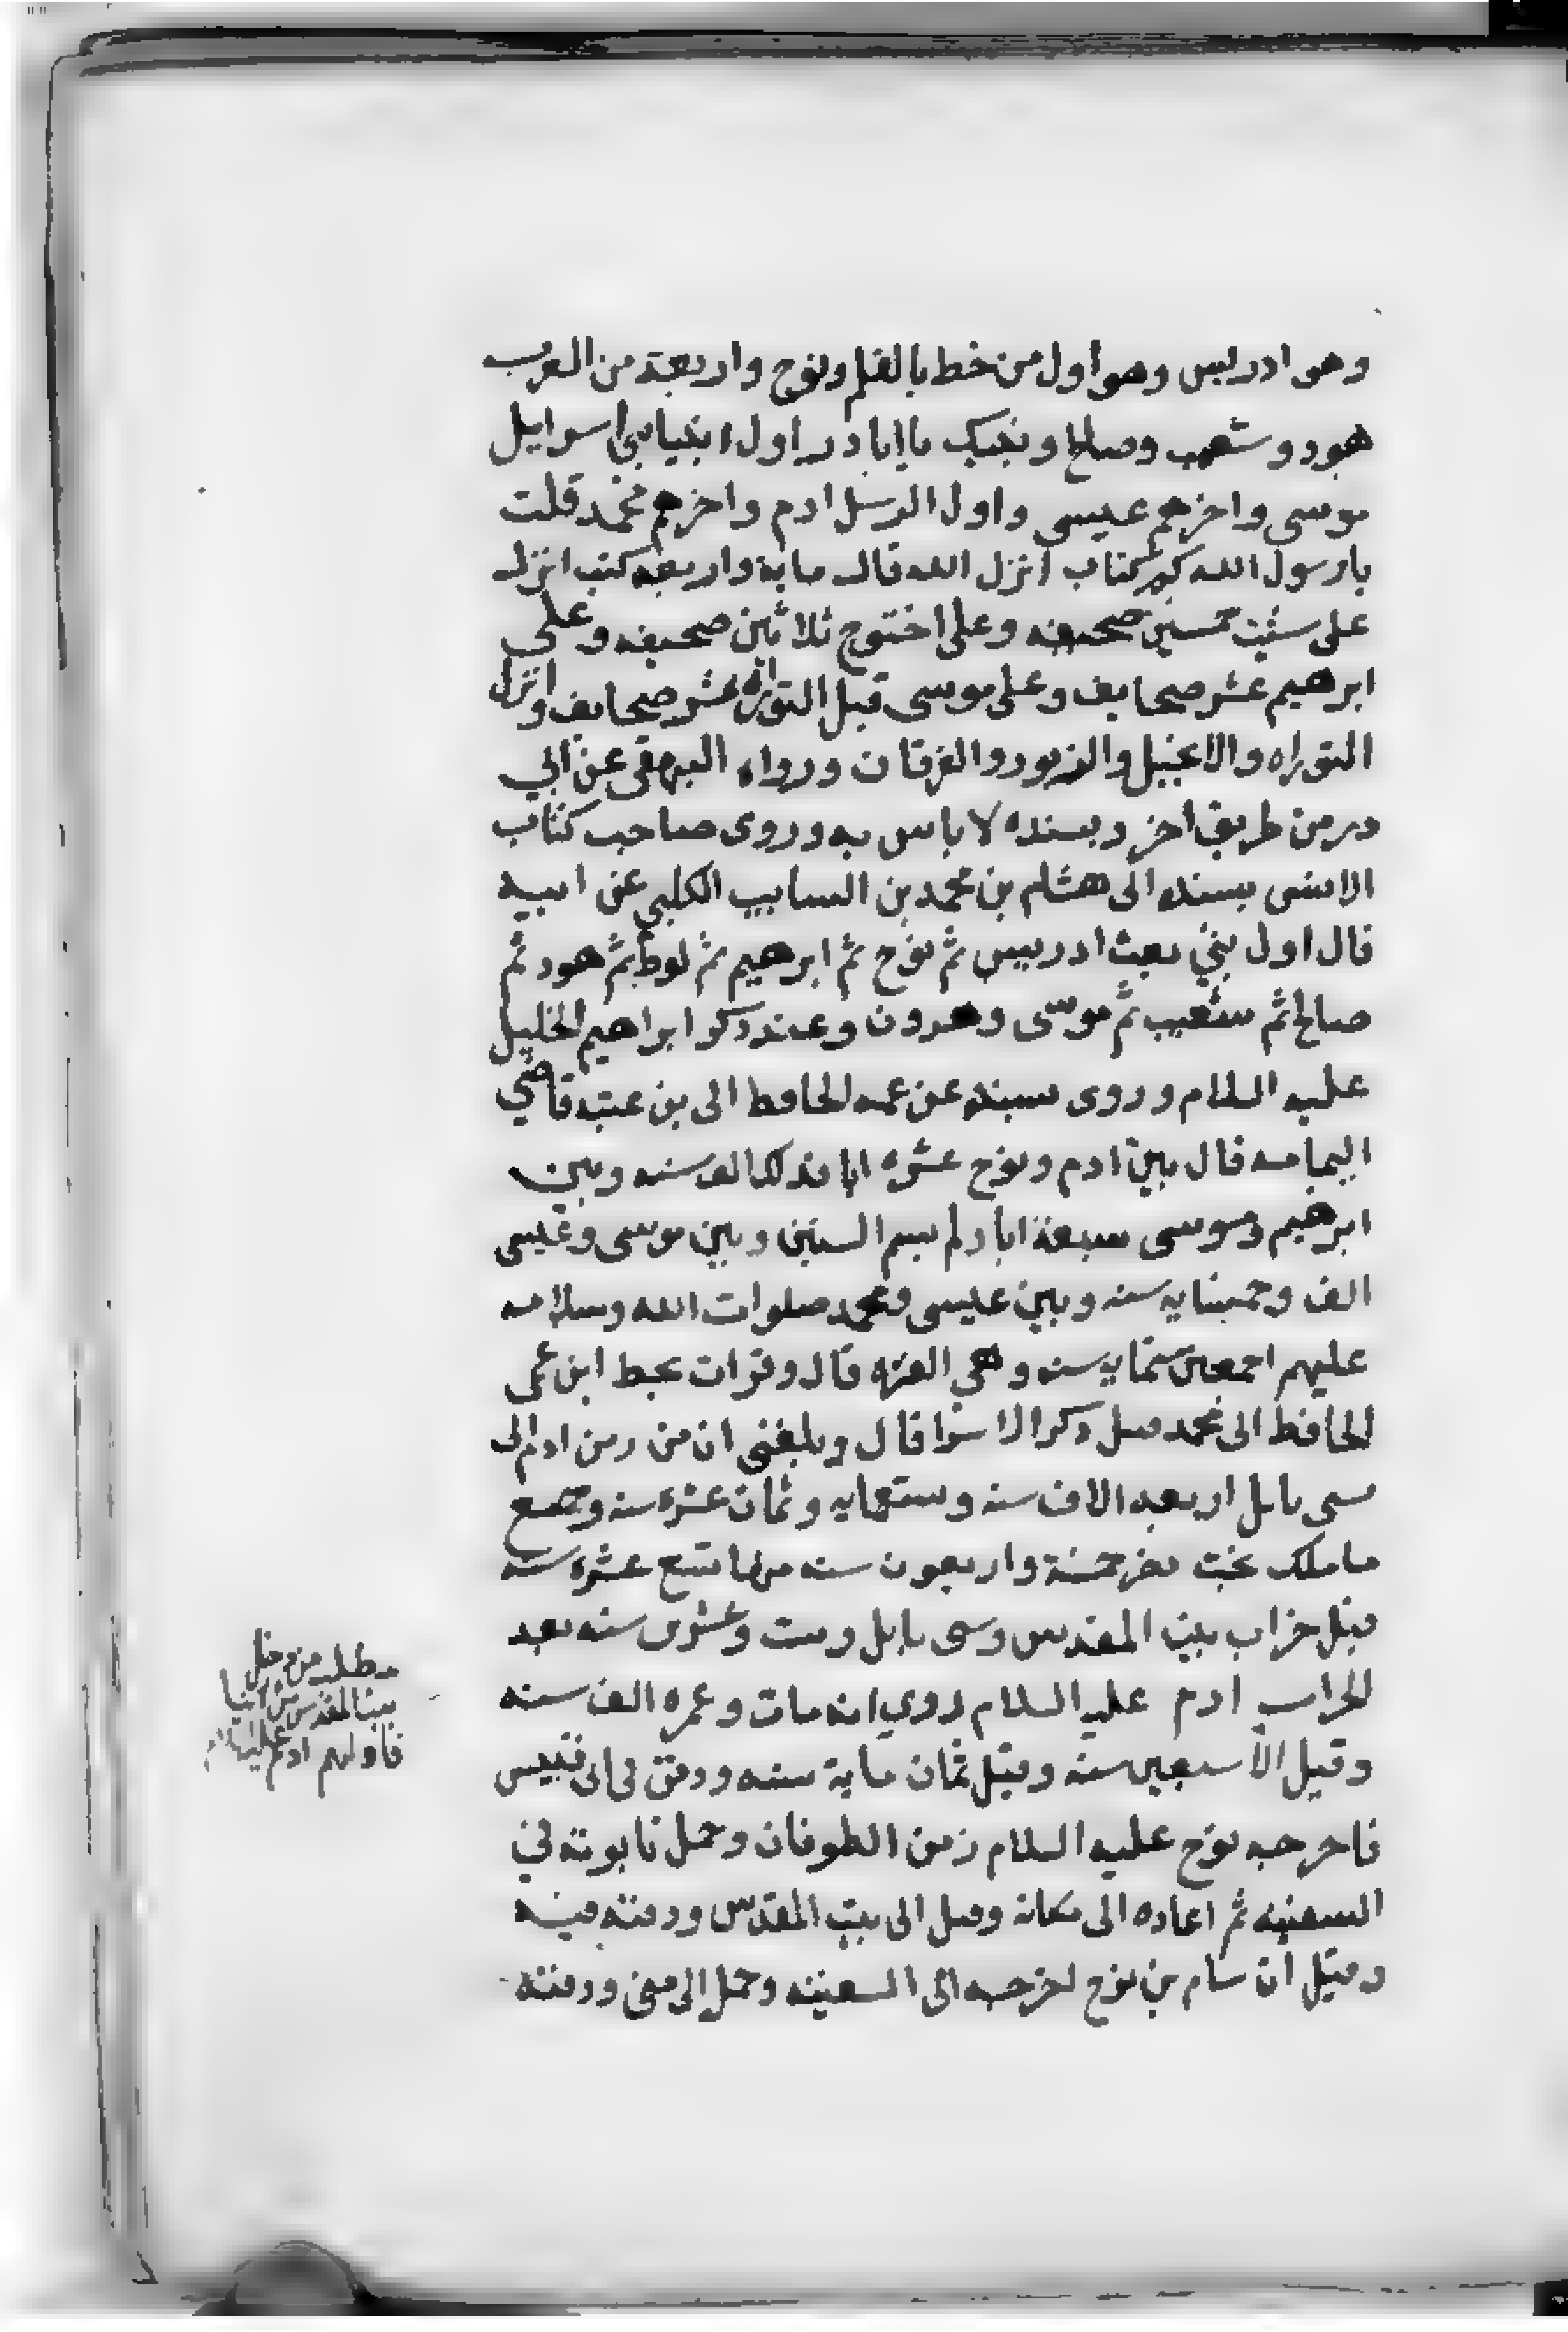 وهو ادريس وهو اول من خط بالقلم ونوح واربعة من العرب
هود و شعيب وصالح ونبيك يا ابا در اول انبيا بني اسرايل
موسى واخرهم عيسى واول الرسل ادم واخرهم محمد قلت
يا رسول الله كم كتاب انزل الله قال ماية واربعه كتب انزل
على شيث خمسين صحيفه وعلى اخنوخ ثلاثين صحيفه وعلى
ابرهيم عشر صحايف وعلى موسى قبل التوراه عشر صحايف وانزل
التوراه والانجيل والزبور والفرقان ورواه البيهقى عن ابي
در من طريق اخر وبسنده لا باس به وروى صاحب كتاب
الانس بسنده الى هشام بن محمد بن السايب الكلبي عن ابيه
قال اول نبي بعث ادريس ثم نوح ثم ابرهيم ثم لوط ثم هود ثم
صالح ثم شعيب ثم موسى وهرون وعند ذكر ابراهيم الخليل
عليه السلام وروى بسنده عن عمه الحافظ الى بن عتبه قاضي
اليمامه قال بين ادم ونوح عشره ابا فذلك الف سنه وبين
ابرهيم وموسى سبعة ابا ولم يسم السنين وبين موسى وعيسى
الف وخمسمايه سنه وبين عيسى ومحمد صلوات الله وسلامه
عليهم اجمعين ستمايه سنه وهي الفتره قال وقرات بخط ابن عمى
الحافظ ابى محمد قبل ذكر الاسرا قال وبلغنى ان من زمن ادم الى
سبى بابل اربعه الاف سنه وستمايه وثمان عشره سنه وجميع
ما ملك بخت نصر خمسة واربعون سنه منها تسع عشره سنه
قبل خراب بيت المقدس وسبى بابل وست وعشرين سنه بعد
الخراب ادم عليه السلام روي انه مات وعمره الف سنه
وقيل الا سبعين سنه وقيل ثمان ماية سنه ودفن فى ابى قبيس
فاخرجه نوح عليه السلام زمن الطوفان وحمل تابوته في
السفينه ثم اعاده الى مكانه وقيل الى بيت المقدس ودفنه فيه
وقيل ان سام بن نوح اخرجه الى السفينه وحمل الى منى ودفنه
مطلب من دخل
بيت المقدس من الانبيا
فاولهم ادم عليه السلام